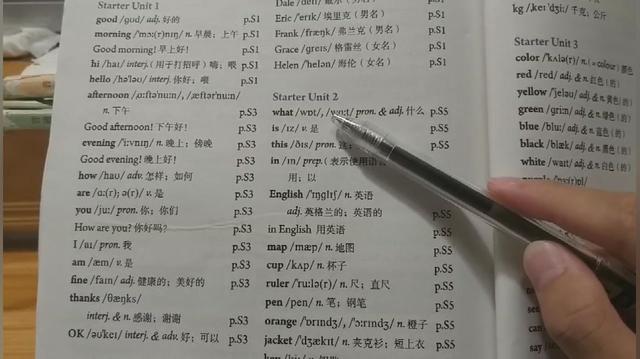 Starter Unit 1
good /gʊd/ adj. 好的 p.S1
morning /'mɔ:(r)nɪŋ/ n. 早晨；上午 p.S1
Good morning! 早上好！ p.S1
hi /haɪ/ interj. (用于打招呼) 嗨；喂 p.S1
hello /hə'ləʊ/ interj. 你好；喂 p.S1
afternoon /ˌɑ:ftə'nu:n/, /ˌæftər'nu:n/
n. 下午 p.S3
Good afternoon! 下午好！ p.S3
evening /'i:vnɪŋ/ n. 晚上；傍晚 p.S3
Good evening! 晚上好！ p.S3
how /haʊ/ adv. 怎样；如何 p.S3
are /ɑ:(r); ə(r)/ v. 是 p.S3
you /ju:/ pron. 你；你们 p.S3
How are you? 你好吗？ p.S3
I /aɪ/ pron. 我 p.S3
am /æm/ v. 是 p.S3
fine /faɪn/ adj. 健康的；美好的 p.S3
thanks /θæŋks/
interj. & n. 感谢；谢谢 p.S3
OK /əʊ'keɪ/ interj. & adv. 好；可以 p.S3
Eric /'erɪk/ 埃里克（男名） p.S1
Frank /fræŋk/ 弗兰克（男名） p.S1
Grace /greɪs/ 格雷丝（女名） p.S1
Helen /'helən/ 海伦（女名） p.S1
Starter Unit 2
what /wɒt/, pron. & adj. 什么 p.S5
is /ɪz/ v. 是
this /ðɪs/ pron.
in /ɪn/ prep. (表示使用语
用；以
English /'ɪŋglɪʃ/ n. 英语
adj. 英格兰的；英语的 p.S5
in English 用英语 p.S5
map /mæp/ n. 地图 p.S5
cup /kʌp/ n. 杯子 p.S5
ruler /'ru:lə(r)/ n. 尺；直尺 p.S5
pen /pen/ n. 笔；钢笔 p.S5
orange /'ɒrɪndʒ/, /'ɔ:rɪndʒ/ n. 橙子 p.S5
jacket /'dʒækɪt/ n. 夹克衫；短上衣 p.S5
千克；公斤
Starter Unit 3
color /'kʌlə(r)/ n. (= colour) 颜色
red /red/ adj. & n. 红色(的)
yellow /'jeləʊ/ adj. & n. 黄色(的)
green /gri:n/ adj. & n. 绿色(的)
blue /blu:/ adj. & n. 蓝色(的)
black /blæk/ adj. & n. 黑色(的)
white /waɪt/ adj. & n. 白色(的)